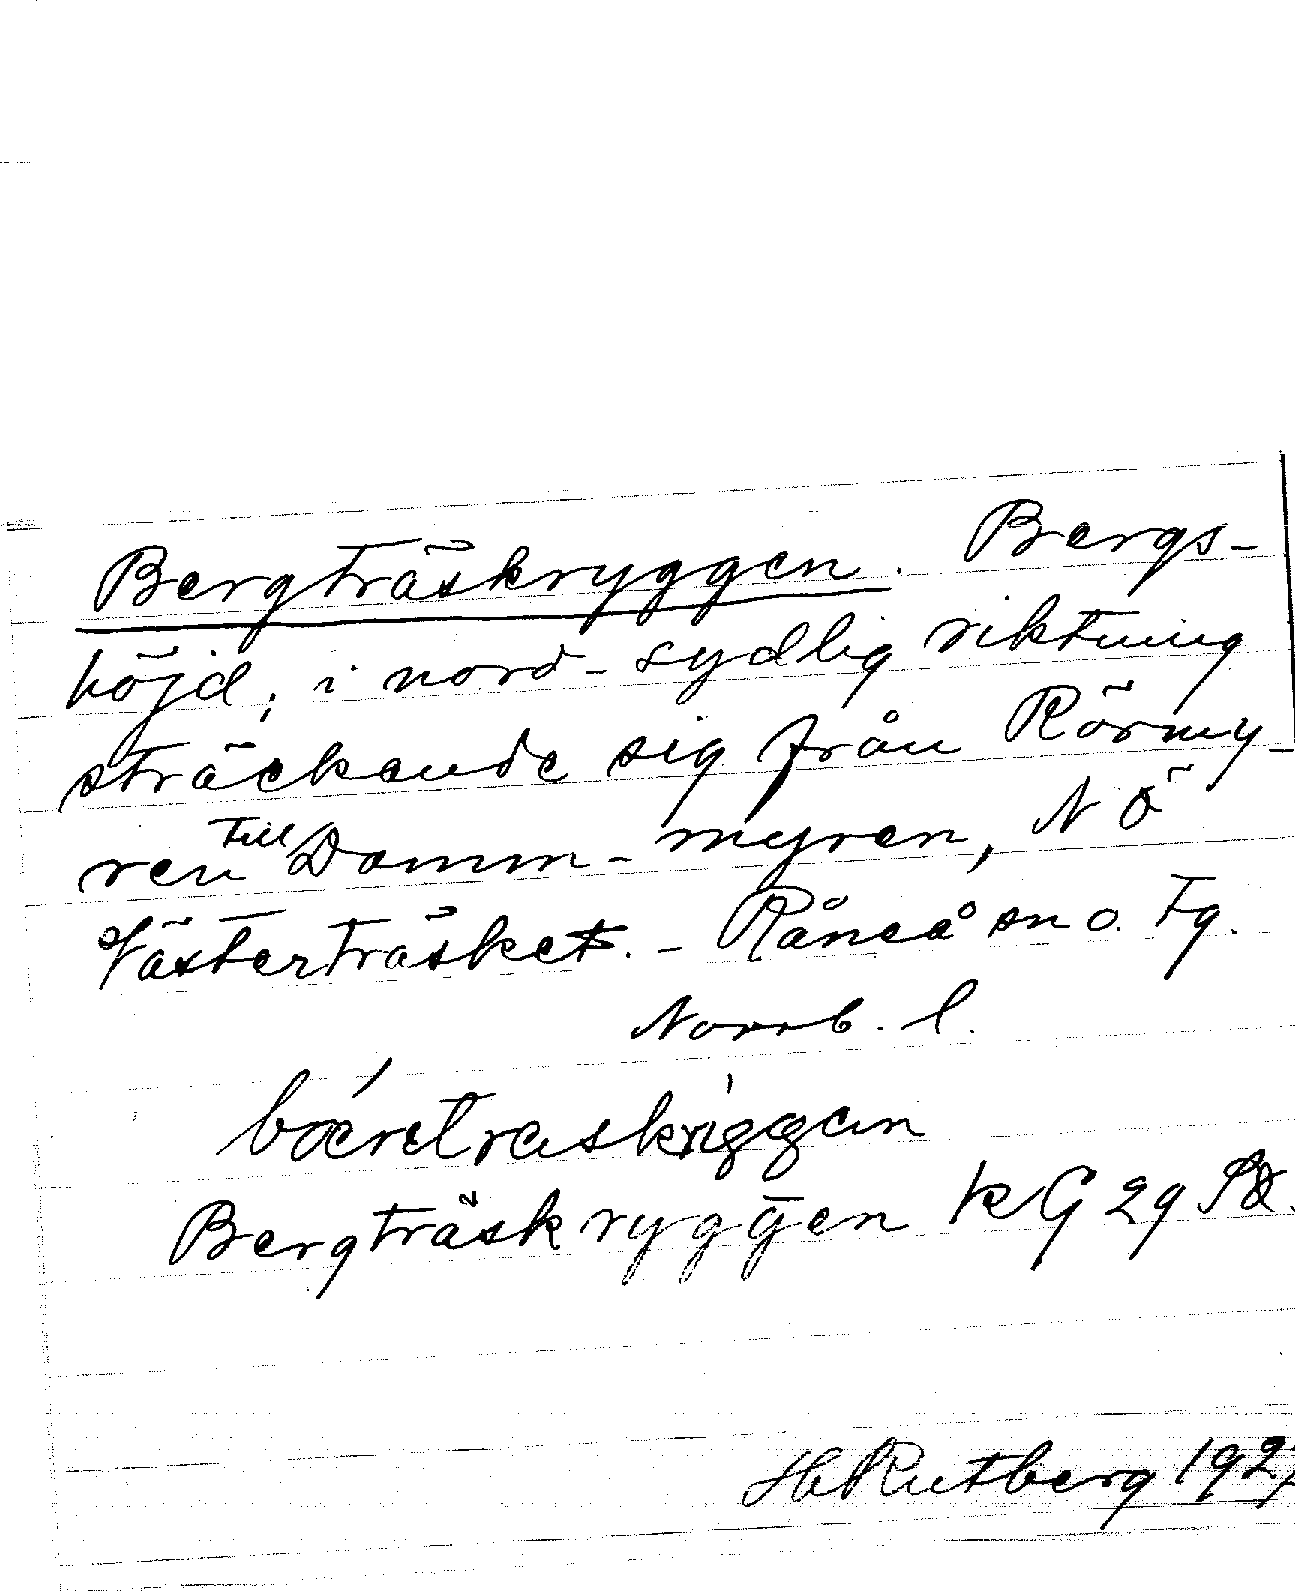 Bergträskryggen. Bergs-
höjd, i nord-sydlig riktning
sträckande sig från Rörmy-
ren till Damm-myren, N Ö
Västerträsket. - Råneå sn o. tg.
Norrb. l.
Bergträskryggen k G 29
H Rutberg 192